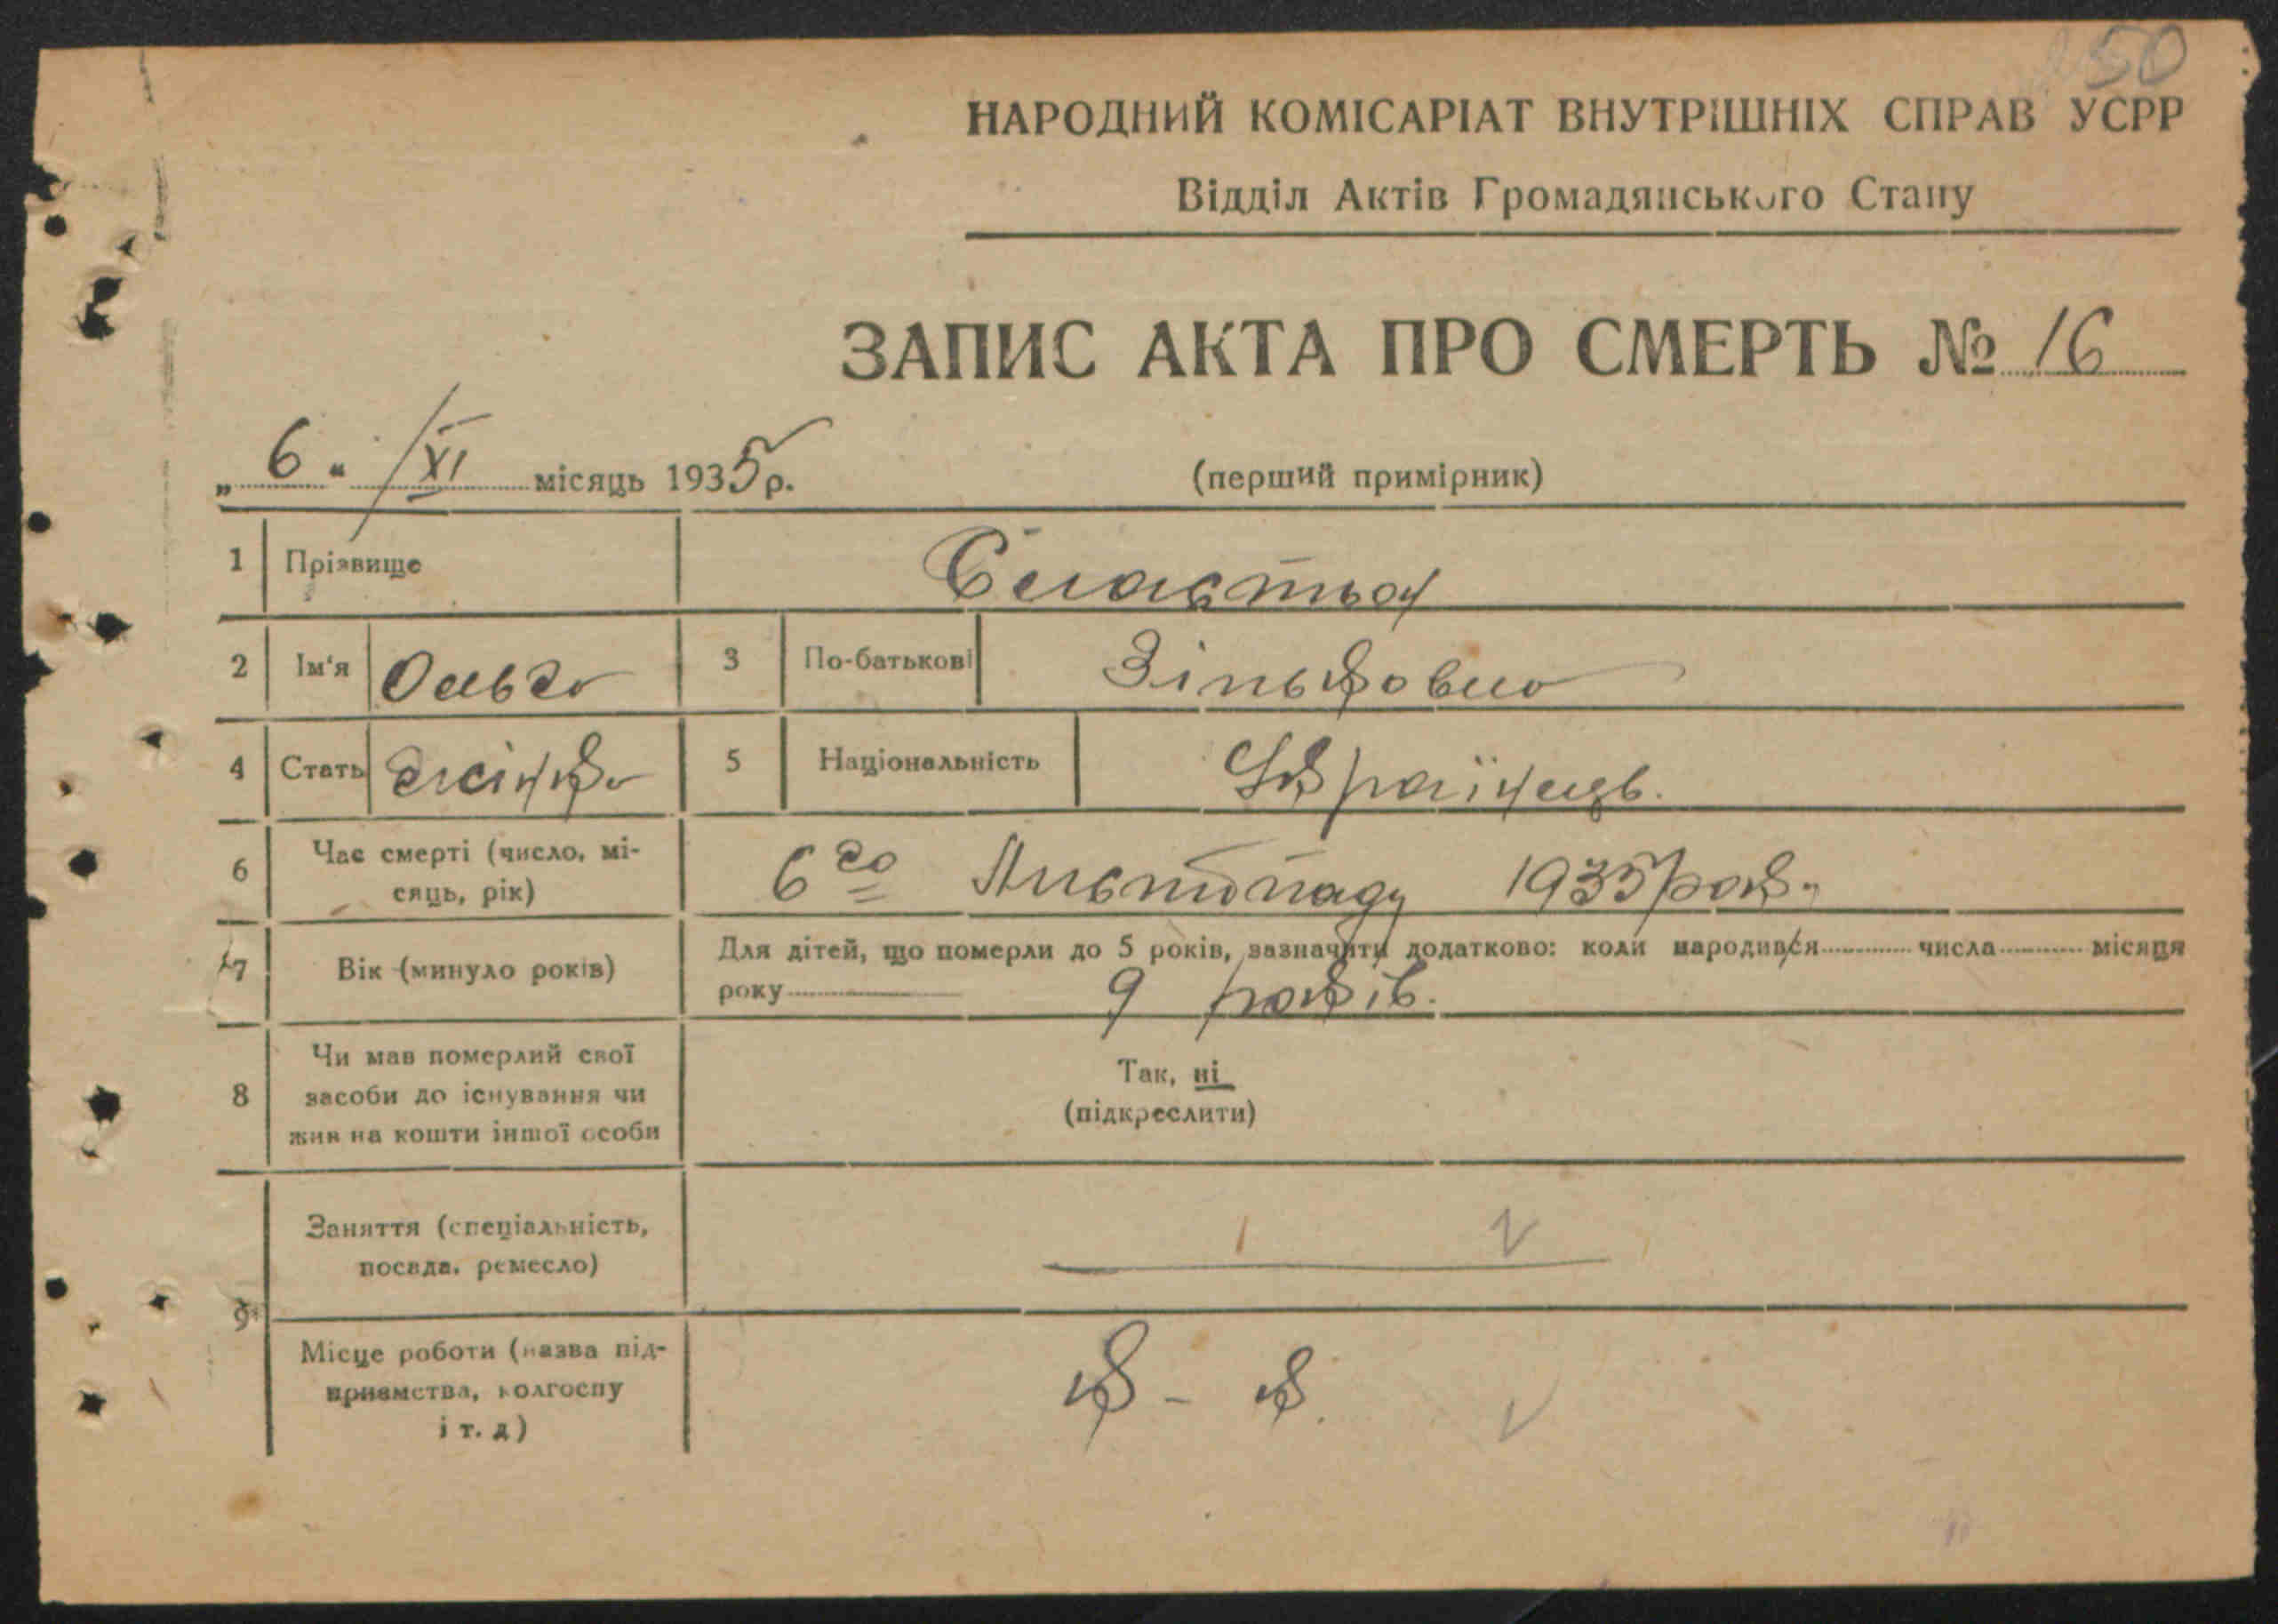 50
НАРОДНИЙ КОМІСАРІАТ ВНУТРІШНІХ СПРАВ УСРР
Відділ Актів Громадянського Стану
ЗАПИС АКТА ПРО СМЕРТЬ № 16
„6“ /XI місяць 1935 р.
(перший примірник)
1 Прізвище
2 Ім'я Ольга 3 По-батькові
4 Стать жінка 5 Національність Українець.
6 Час смерті (число, мі-
сяць, рік) 6го Листопаду 1935 рок.
7 Вік (минуло років) Для дітей, що померли до 5 років, зазначити додатково: коли народився числа місяця
року 9 років.
8 Чи мав померлий свої
засоби до існування чи
жив на кошти іншої особи
Так, ні
(підкреслити)
9 Заняття (спеціальність,
посада, ремесло)
Місце роботи (назва під-
приємства, колгоспу
і т. д) к - к.